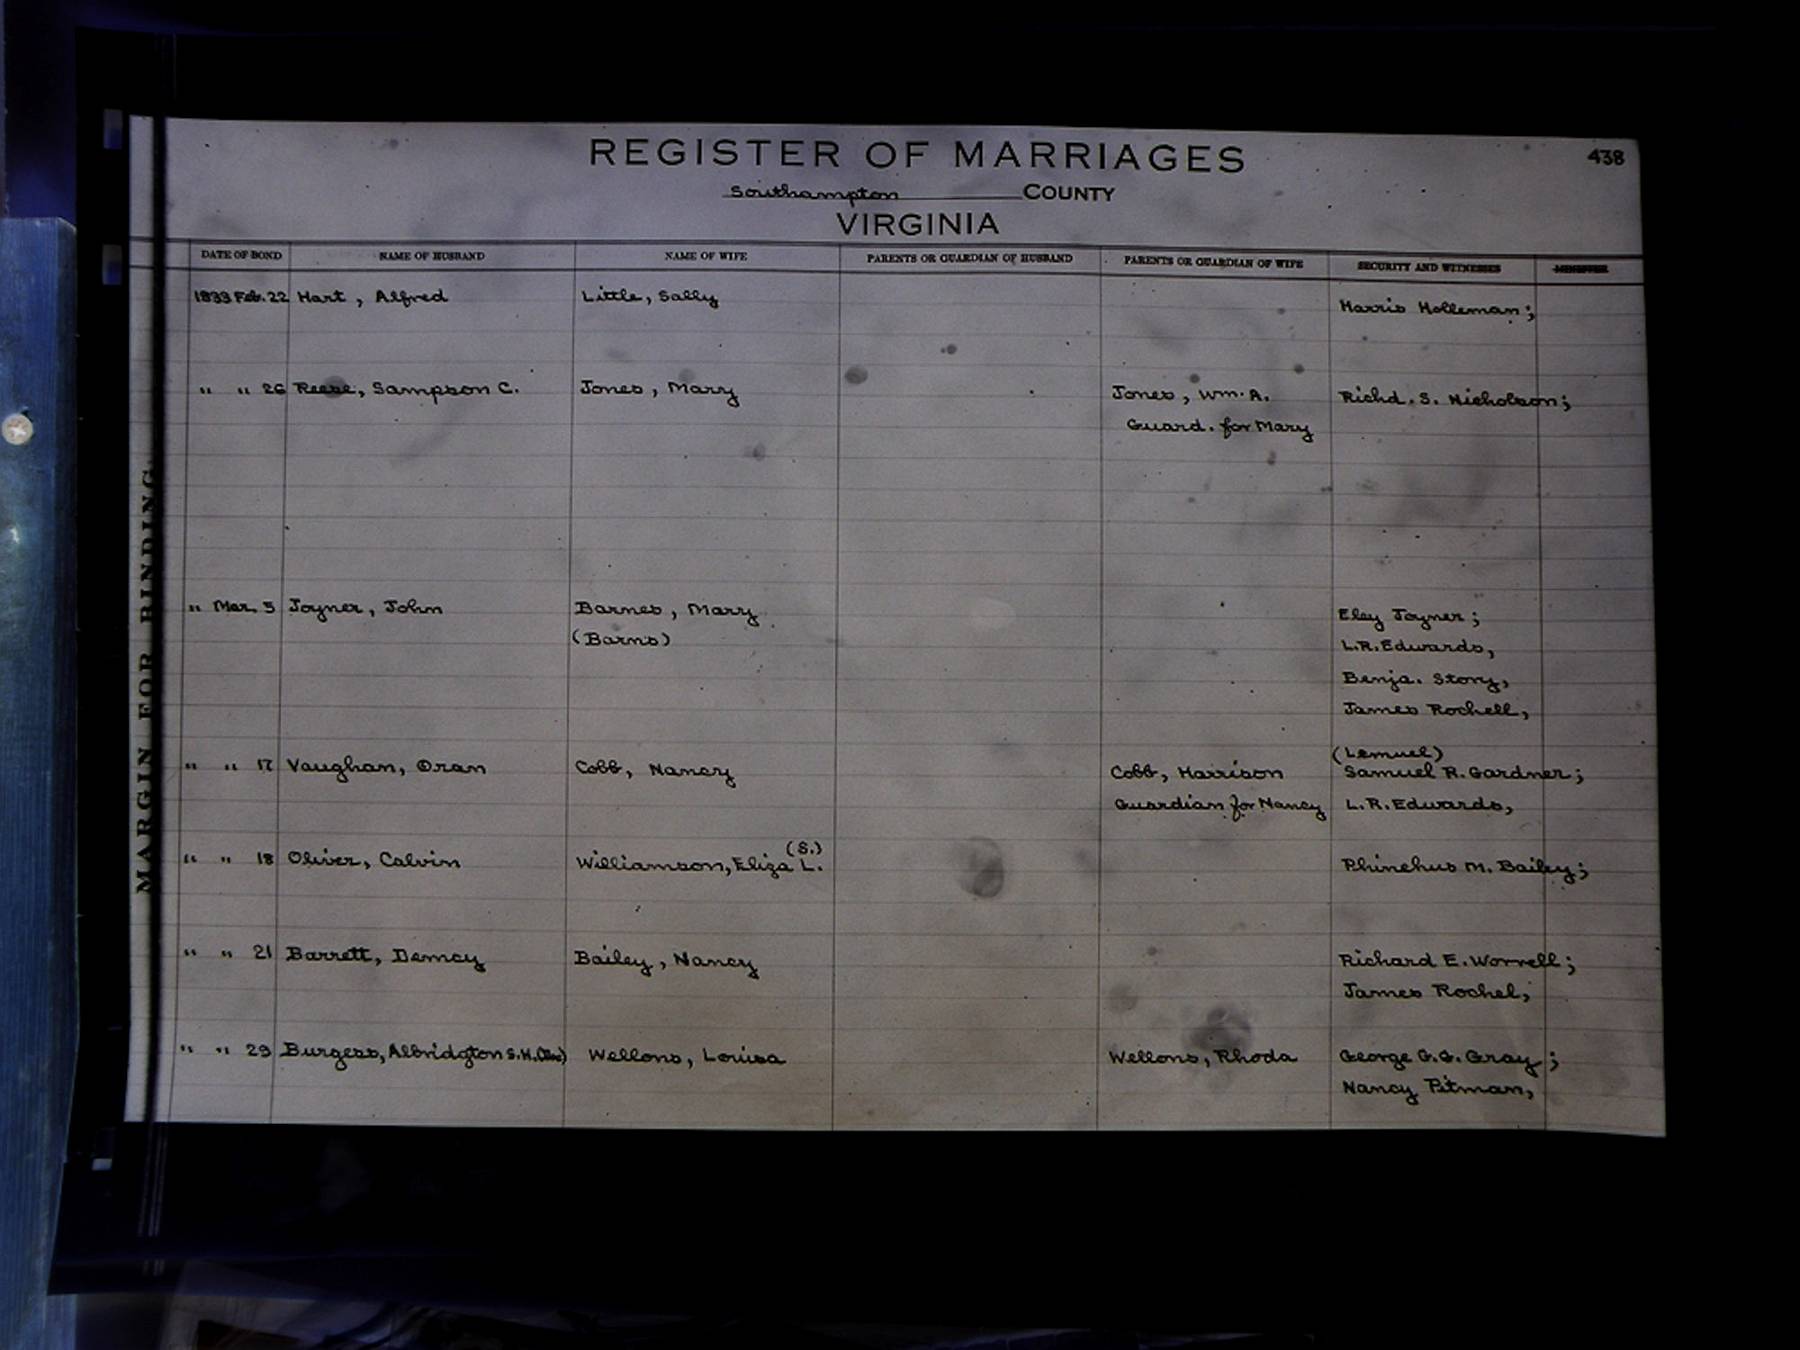 REGISTER OF MARRIAGES
438
Southampton COUNTY
VIRGINIA
DATE OF BOND NAME OF HUSBAND NAME OF WIFE PARENTS OR GUARDIAN OF HUSBAND PARENTS OR GUARDIAN OF WIFE SECURITY AND WITNESSES MINISTER
1833 Feb. 22 Hart, Alfred Little, Sally
Harris Holleman;
" " 26 Reese, Sampson C. Jones, Mary Jones, Wm. A. Richd. S. Nicholson;
Guard. for Mary
" Mar. 5 Joyner, John Barnes, Mary Eley Joyner;
(Barns) L.R. Edwards,
Benja. Story,
James Rochell,
(Lemuel)
" " 17 Vaughan, Oran Cobb, Nancy Cobb, Harrison Samuel R. Gardner;
Guardian for Nancy L.R. Edwards,
(S.)
" " 18 Oliver, Calvin Williamson, Eliza L. Phinehus M. Bailey;
" " 21 Barrett, Demcy Bailey, Nancy Richard E. Worrell;
James Rochel,
" " 29 Burgess, Albridgton S.H. Wellons, Louisa Wellons, Rhoda George G.G. Gray;
Nancy Pitman,
MARGIN FOR BINDING